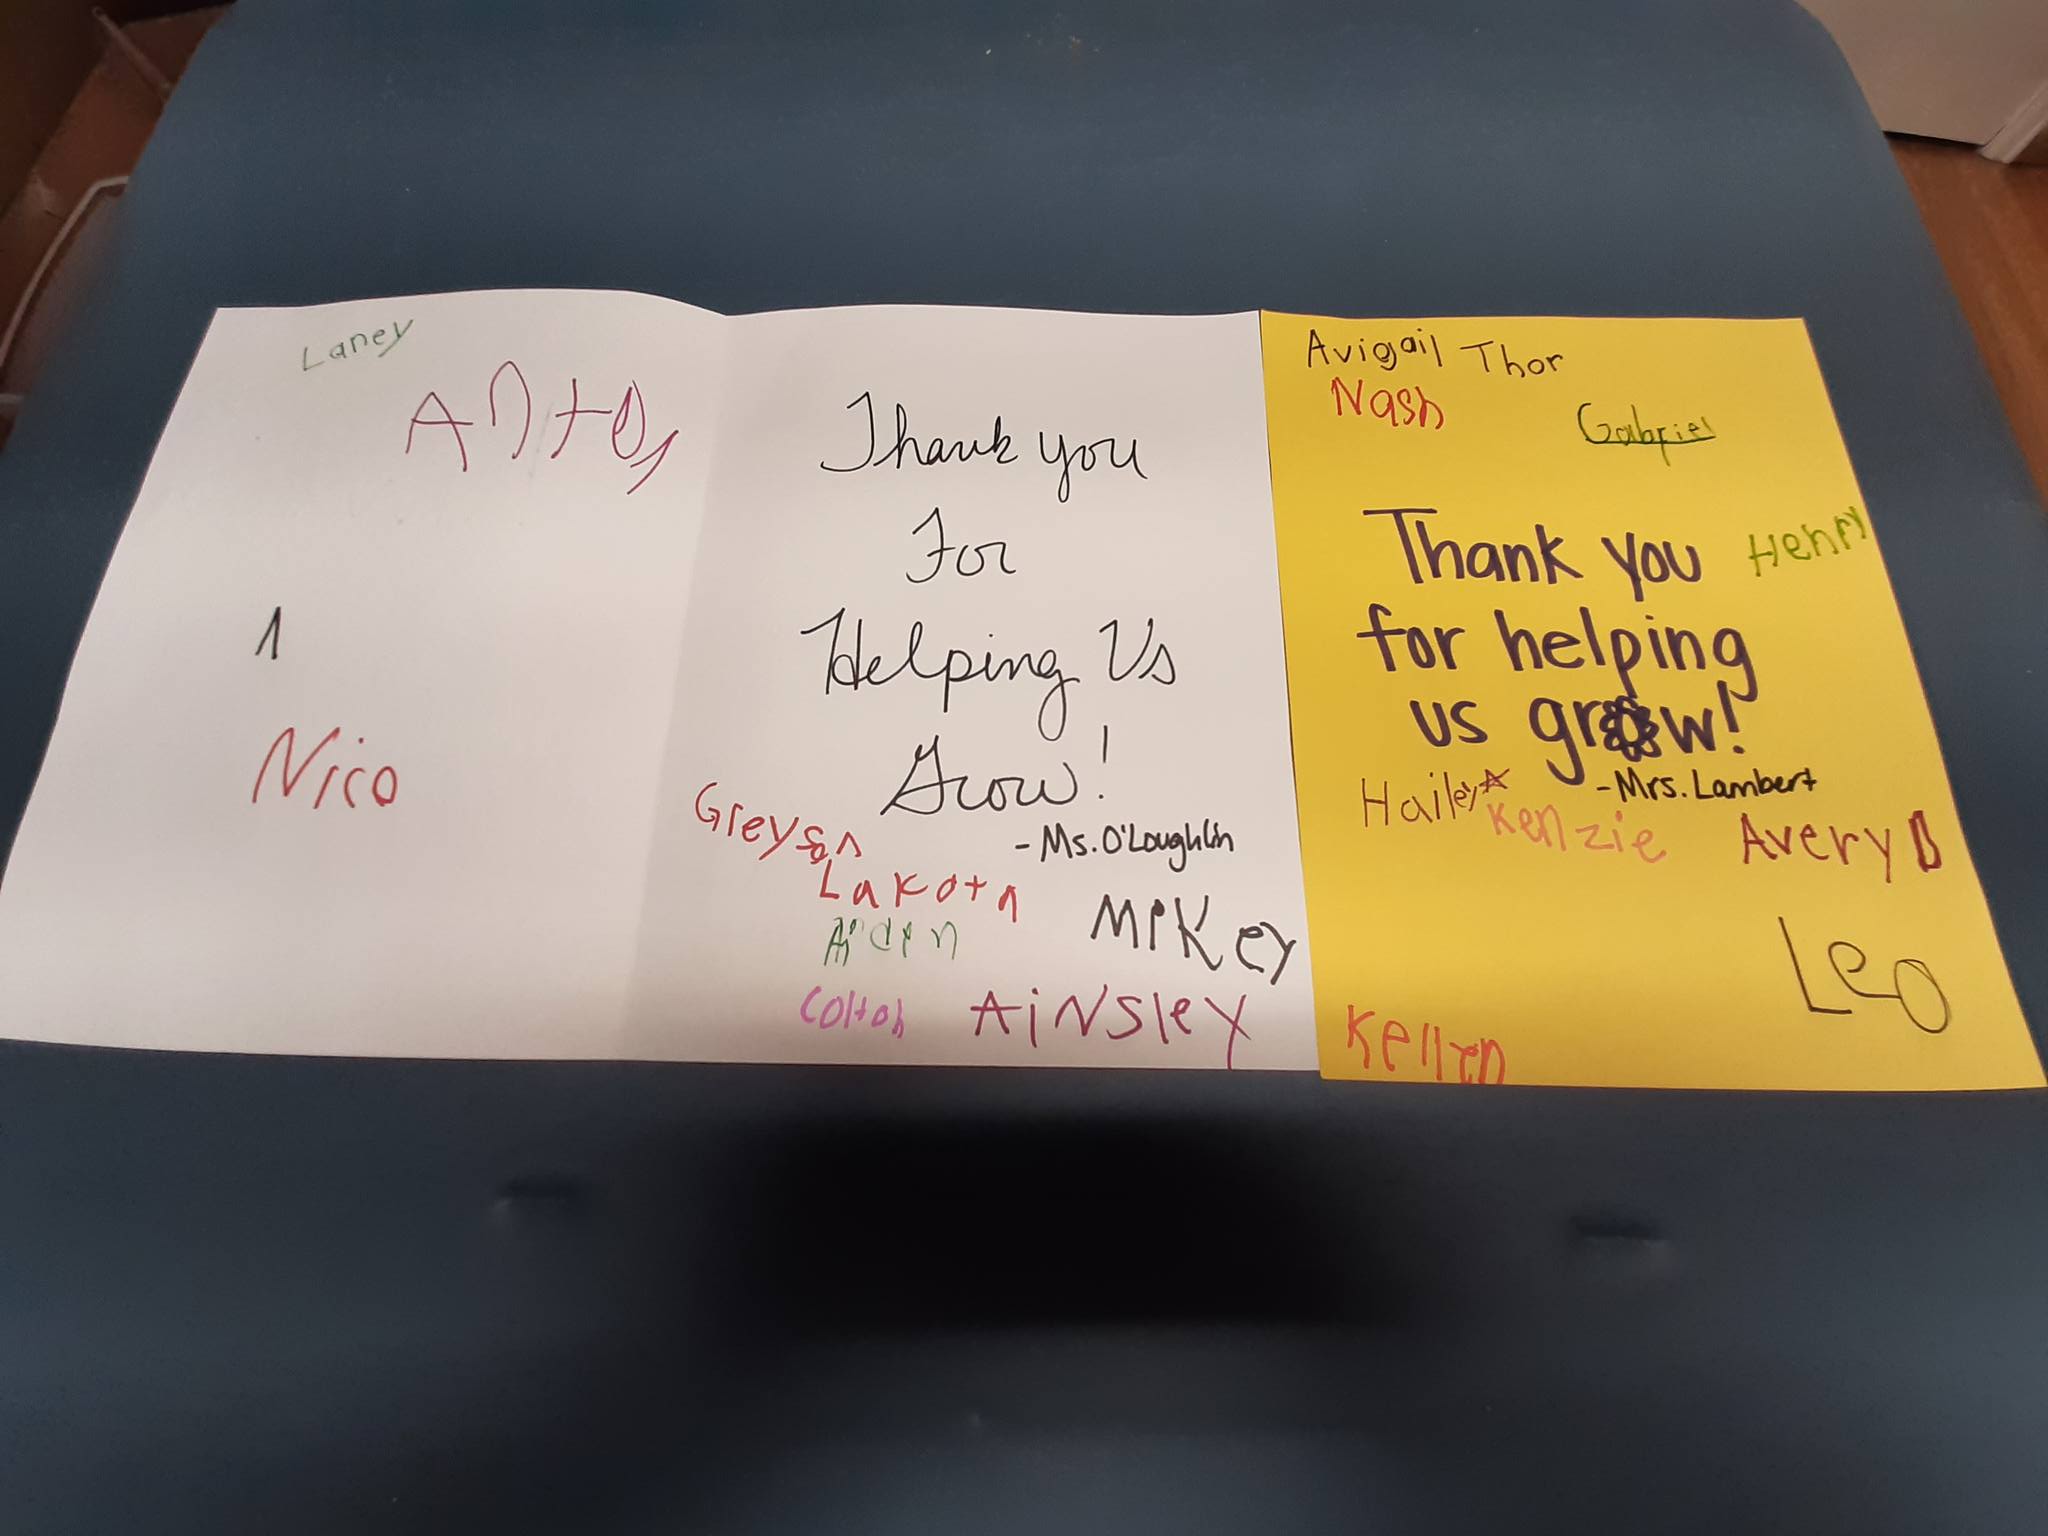 Laney
Nico
Thank you
For
Helping Us
Grow!
- Ms. O'Loughlin
Greyson
Lakota
Aiden
Mikey
Colton
AiNsley
Avigail Thor
Nash
Gabriel
Thank you
Henry
for helping
us grow!
- Mrs. Lambert
Hailey
Kenzie
Avery
Leo
Kellen